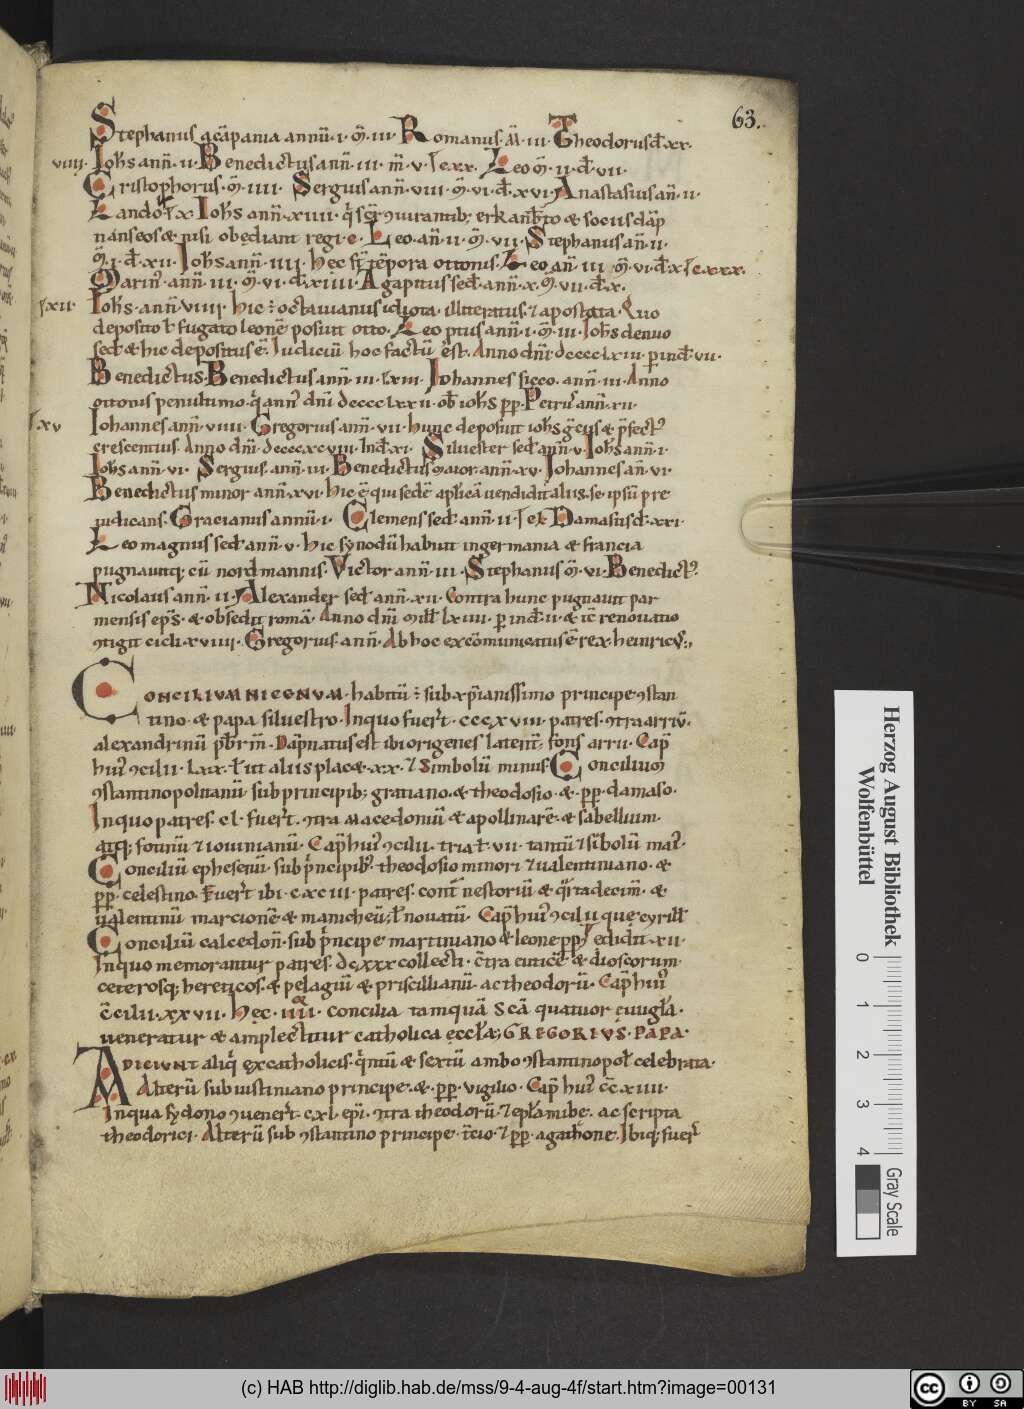 63.
Stephanus acāpania annū·i·m̄·iii·Romanus·m̄·iii·Theodorus d̄·xx·
viiii· Ioh̄s ann̄·ii·Benedictus ann̄·iii·m̄·v· Leo m̄·ii·d̄·vii·
Cristophorus·m̄·iiii· Sergius ann̄·viii·m̄·vi·d̄·xvi·Anastasius an̄·ii·
Lando Ioh̄s ann̄·xiiii· erkanb̄to & sociis
regi· Leo·an̄·ii·m̄·vii·Stephanus an̄·ii·
m̄·i·d̄·xii·Ioh̄s ann̄·iiii·hec st̄ tēpora ottonis·Leo an̄·iii·m̄·vi·d̄·x
Marin᾿·ann̄·iii·m̄·vi·d̄·xiiii·Agapitus sed̄·ann̄·x·m̄·vii·d̄·x·
xii Ioh̄s·ann̄·viiii·hic octauianus idiota·illiteratus·⁊ apostata·Quo
deposito ł fugato leonē posuit otto·Leo pius ann̄·i·m̄·iii·Ioh̄s denuo
sed̄ & hic depositus ē·Iudiciū hoc factū ēst·Anno dn̄i·dcccclxiii·p ind̄·vii·
Benedictus·Benedictus ann̄·iii· Iohannes sicco·ann̄·iii·Anno
ottonis penultimo· ann᾿ dn̄i dcccclxxii·ob̄ ioh̄s pp·Petrus ann̄·xii·
xv Iohannes ann̄·viiii·Gregorius ann̄·vii·hunc deposuit ioh̄s gc̄us & p̄fect᾿
crescentius·Anno dn̄i·dccccxcviii·Ind̄·xi·Siluester sed̄ ann̄·v·Ioh̄s ann̄·i·
Ioh̄s ann̄·vi·Sergius·ann̄·iii·Benedictus maior ann̄·xv·Iohannes an̄·vi·
Benedictus minor ann̄·xvi·hic ē qui sedē aplicā uendidit aliis·se ipsū pre
iudicans·Gracianus annū·i·Clemens sed̄ ann̄·ii· Damasus d̄·xxi·
Leo magnus sed̄ ann̄·v·hic synodū habuit in germania & francia
pugnauitq; cū nordmannis·Victor ann̄·iii·Stephanus m̄·vi·Benedict᾿
Nicolaus ann̄·ii·Alexander sed̄ ann̄·xii·Contra hunc pugnauit par
mensis ep̄s·& obsedit romā·Anno dn̄i mill lxiiii·p ind̄·ii·& renouatio
ꝯtigit cicli·xviiii·Gregorius·ann̄·Ab hoc excōmunicatus ē rex heinricus·
CONCILIUM NICENUM·habitū sub xp̄ianissimo principe ꝯstan
tino·& papa siluestro·In quo fuer̄t·cccxviii·patres·ꝯtra arriū·
alexandrinū pb̄rm̄·Dāpnatus est ibi origenes fons arrii·Cap̄
hui᾿ ꝯcilii·lxx·ł ut aliis plac&·xx·⁊ Simbolū minus·Concilium
ꝯstantinopolitanū·sub principib; gratiano·& theodosio·&·pp·damaso·
In quo patres·cl·fuer̄t·ꝯtra Macedoniū & apollinarē·& sabellium·
atq; fotinū ⁊ iouinianū·Cap̄ hui᾿ ꝯcilii·tria ł·vii·tantū ⁊ sībolū mai᾿·
Conciliū ephesenū·sub p̄ncipib᾿·theodosio minori ⁊ ualentiniano·&
pp·celestino·Fuer̄t ibi·cxciii·patres·cont̄ nestoriū & &
ualentinū marcionē & manicheū·ł nouatū·Cap̄ hui᾿ ꝯcilii que cyrill̄
Conciliū calcedon̄·sub p̄ncipe martiniano & leone pp· edidit·xii·
In quo memorantur patres·dcxxx collecti·c̄tra euticē & dioscorum·
ceterosq; hereticos·& pelagiū & priscillianū·ac theodorū·Cap̄ hui᾿
c̄cilii·xxvii·Hec·iiii·concilia tamquā Scā quatuor euugła·
ueneratur & amplectitur catholica eccła; GREGORIVS·PAPA·
ADICIUNT aliq̄ ex catholicis·q̄ntū & sextū ambo ꝯstantinopoł celebrata·
Alterū sub iustiniano principe·&·pp·uigilio·Cap̄ hui᾿ cc̄·xiiii·
In qua sydono ꝯuener̄t·cxl·epi·ꝯtra theodorū· ac scripta
theodorici·Alterū sub ꝯstantino principe·t̄cio·⁊ pp·agathone·Ibiq; fuer̄
Herzog August Bibliothek
Wolfenbüttel
0 1 2 3 4
Gray Scale
(c) HAB http://diglib.hab.de/mss/9-4-aug-4f/start.htm?image=00131
cc BY SA